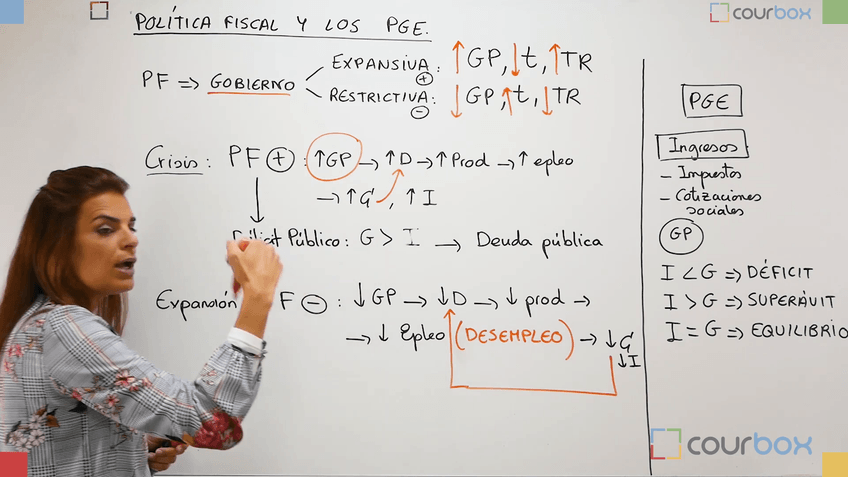 POLÍTICA FISCAL Y LOS PGE.
courbox
PF => GOBIERNO
EXPANSIVA: ↑GP, ↓t, ↑TR
+
RESTRICTIVA: ↓GP, ↑t, ↓TR
−
Crisis: PF + : ↑GP → ↑D → ↑Prod → ↑epleo
→ ↑G, ↑I
Público: G > I → Deuda pública
Expansión F − : ↓GP → ↓D → ↓prod →
→ ↓Epleo (DESEMPLEO) → ↓G
↓I
PGE
Ingresos
- Impuestos
- Cotizaciones
sociales
GP
I < G => DÉFICIT
I > G => SUPERÁVIT
I = G => EQUILIBRIO
courbox